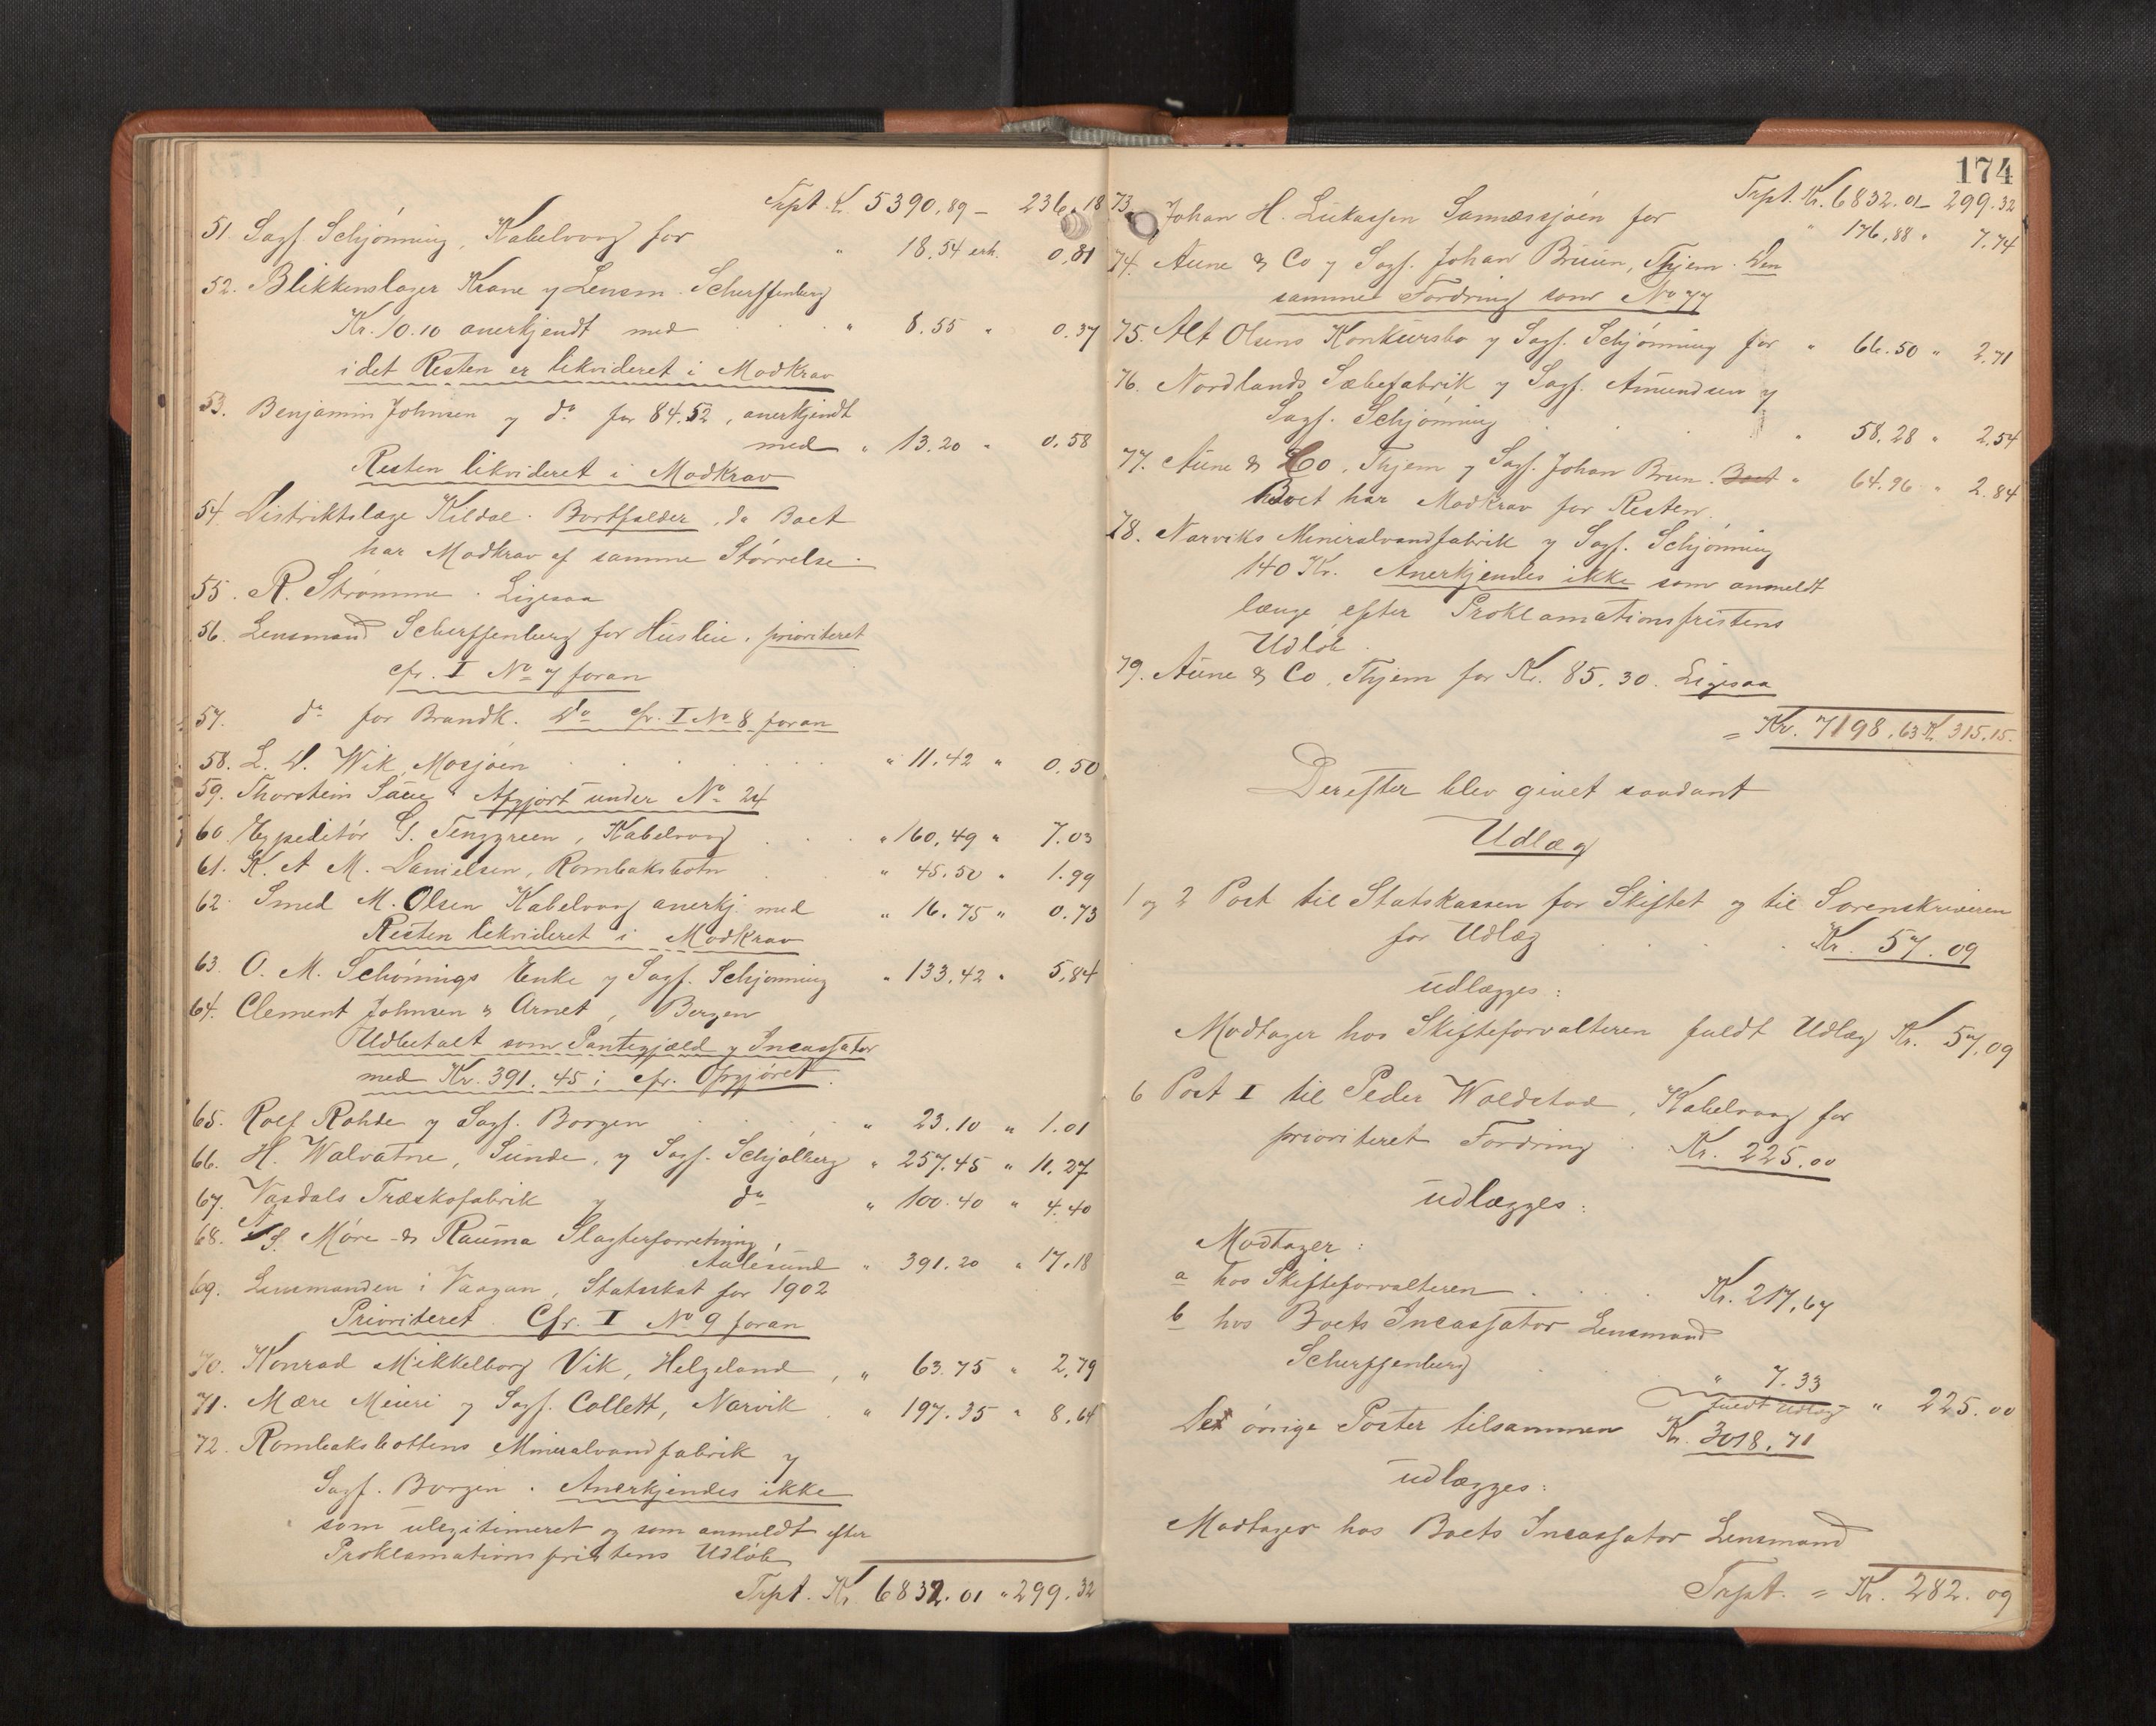 Trpt. K. 5390,89 – 236.18
51 Sagf. Schjønning, Kabelvaag for " 18.54 erh. 0.81
52. Blikkenslager Krane v/ Lensm. Scherffenberg
Kr. 10.10 anerkjendt med " 8.55 " 0.37
idet Resten er likvideret i Modkrav
53. Benjamin Johnsen v/ do for 84.52, anerkjendt
med " 13.20 " 0.58
Resten likvideret i Modkrav
54. Distriktslæge Kildal. Bortfalder, da Boet
har Modkrav af samme Størrelse.
55. R. Strømme. Ligesaa
56. Lensmand Scherffenberg for Husleie, prioriteret
cfr. I No 7 foran
57. do for Brandk. Do cfr. I No 8 foran
58. L. D. Wik, Mosjøen " 11.42 " 0.50
59. Thorstein Saue. Afgjort under No 24
60. Expeditør G. Tenggreen, Kabelvaag " 160.49 " 7.03
61. K. A M. Danielsen, Rombaksbotn " 45.50 " 1.99
62. Smed M. Olsen Kabelvaag anerkj. med " 16.75 " 0.73
Resten likvideret i Modkrav
63. O. M. Schønnings Enke v/ Sagf. Schjønning " 133.42 " 5.84
64. Clement Johnsen & Arnet, Bergen
Udbetalt som Pantegjæld v/ Incassator
med Kr. 391.45; cfr. Opgjøret.
65. Rolf Rohde v/ Sagf. Borgen " 23.10 " 1.01
66. H. Walvatne, Sunde, v/ Sagf. Schjølberg " 257.45 " 11.27
67. Vasdals Træskofabrik v/ do " 100.40 " 4.40
68. A/S. Møre & Rauma Slagterforretning,
Aalesund " 391.20 " 17.18
69. Lensmanden i Vaagan, Statsskat for 1902
Prioriteret. Cfr. I No 9 foran
70. Konrad Mikkelborg Vik, Helgeland, " 63.75 " 2.79
71. Mære Meieri v/ Sagf. Collett, Narvik " 197.35 " 8.64
72. Rombaksbottens Mineralvandfabrik v/
Sagf. Borgen. Anerkjendes ikke
som ulegitimeret og som anmeldt efter
Proklamationsfristens Udløb
Trpt. Kr. 6832.01 " 299.32
174
Trpt. Kr. 6832.01 – 299.32
73. Johan H. Lukassen Sannæssjøen for " 176.88 " 7.74
74. Aune & Co v/ Sagf. Johan Bruun, Thjem. Den
samme Fordring som No 77
75. Alf Olsens Konkursbo v/ Sagf. Schjønning for " 66.50 " 2.71
76. Nordlands Sæbefabrik v/ Sagf. Amundsen v/
Sagf. Schjønning " 58.28 " 2.54
77. Aune & Co, Thjem v/ Sagf. Johan Brun. Boet " 64.96 " 2.84
Boet har Modkrav for Resten.
78. Narviks Mineralvandfabrik v/ Sagf. Schjønning
140 Kr. Anerkjendes ikke som anmeldt
længe efter Proklamationsfristens
Udløb.
79. Aune & Co, Thjem for Kr. 85.30. Ligesaa
= Kr. 7198.63 K. 315.15.
Derefter blev givet saadant
Udlæg
1 og 2 Post til Statskassen for Skiftet og til Sorenskriveren
for Udlæg Kr. 57.09
udlægges:
Modtager hos Skifteforvalteren fuldt Udlæg Kr. 57.09
6 Post I til Peder Woldstad, Kabelvaag for
prioriteret Fordring Kr. 225.00
udlægges:
Modtager:
a hos Skifteforvalteren Kr. 217,67
b hos Boets Incassator Lensmand
Scherffenberg " 7.33
fuldt Udlæg " 225.00
De øvrige Poster tilsammen Kr. 3018.71
udlægges:
Modtager hos Boets Incassator Lensmand
Trpt. = Kr. 282.09